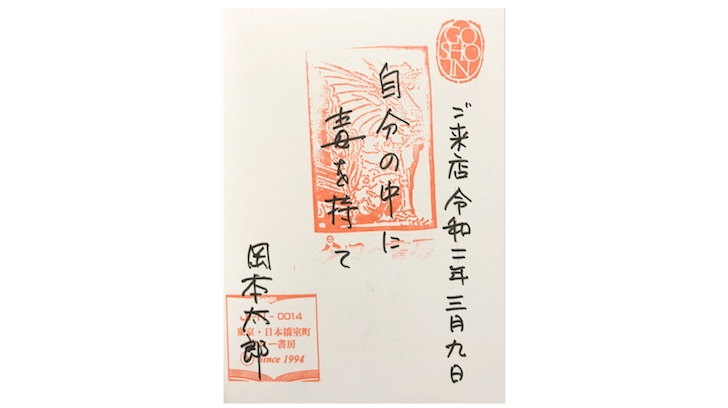 GO
SHO
IN
ご来店 令和二年 三月九日
自分の中に
毒を持て
岡本太郎
0014
東京・日本橋室町
ー書房
Since 1994